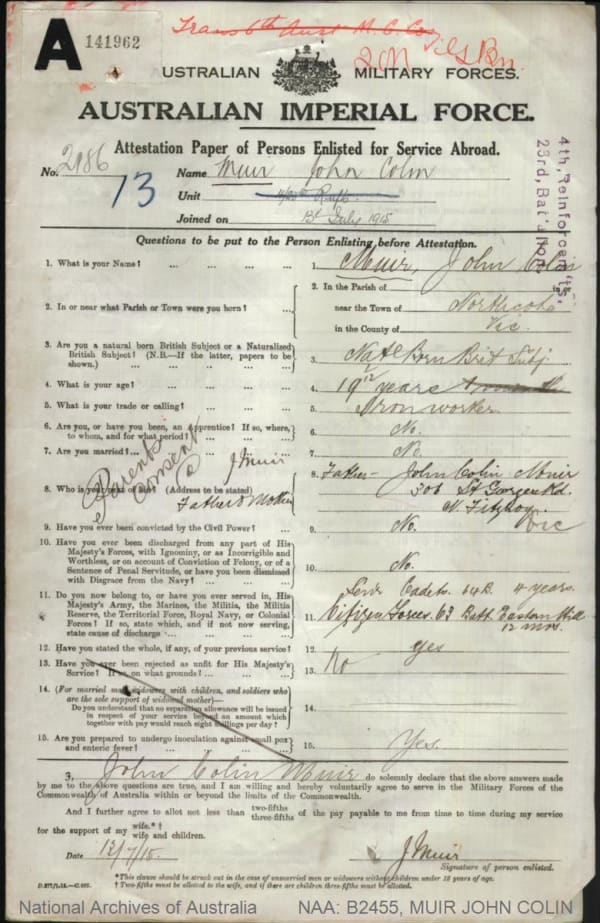 Trans 6th Aust M. G. Co.
A
141962
USTRALIAN MILITARY FORCES.
AUSTRALIAN IMPERIAL FORCE.
Attestation Paper of Persons Enlisted for Service Abroad.
No. 2986 Name Muir John Colin
13
Unit 4/23rd Rnfts
Joined on 13th July 1915
4th, Reinforcem'ts,
23rd, Bat'alion
Questions to be put to the Person Enlisting before Attestation.
1. What is your Name? ... ... ... ... 1. Muir, John Colin
2. In or near what Parish or Town were you born? ... 2. In the Parish of in or
near the Town of Northcote
in the County of Vic.
3. Are you a natural born British Subject or a Naturalized
British Subject? (N.B.—If the latter, papers to be
shown.) ... ... ... ... ... 3. Nat'l Born Brit Subj.
4. What is your age? ... ... ... ... 4. 19 years
5. What is your trade or calling? ... ... ... 5. Ironworker
6. Are you, or have you been, an Apprentice? If so, where,
to whom, and for what period? ... ... ... 6. No.
7. Are you married? ... ... ... ... 7. No.
Parents Consent
J Muir
Father & Mother
8. Who is your next of kin? (Address to be stated) 8. Father - John Colin Muir
306 St Georges Rd.
N. Fitzroy
Vic
9. Have you ever been convicted by the Civil Power? ... 9. No.
10. Have you ever been discharged from any part of His
Majesty's Forces, with Ignominy, or as Incorrigible and
Worthless, or on account of Conviction of Felony, or of a
Sentence of Penal Servitude, or have you been dismissed
with Disgrace from the Navy? ... ... ... 10. No.
11. Do you now belong to, or have you ever served in, His
Majesty's Army, the Marines, the Militia, the Militia
Reserve, the Territorial Force, Royal Navy, or Colonial
Forces? If so, state which, and if not now serving,
state cause of discharge ... ... ...
Senr Cadets. 64B. 4 years.
11 Citizen Forces 63 Batt. Eastern Hill
12 mos.
12. Have you stated the whole, if any, of your previous service? 12. Yes
13. Have you ever been rejected as unfit for His Majesty's
Service? If so, on what grounds? ... ... ... 13. No
14. (For married men, widowers with children, and soldiers who
are the sole support of widowed mother)—
Do you understand that no separation allowance will be issued
in respect of your service beyond an amount which
together with pay would reach eight shillings per day? 14.
15. Are you prepared to undergo inoculation against small pox
and enteric fever? ... ... ... ... 15. Yes.
I, John Colin Muir do solemnly declare that the above answers made
by me to the above questions are true, and I am willing and hereby voluntarily agree to serve in the Military Forces of the
Commonwealth of Australia within or beyond the limits of the Commonwealth.
And I further agree to allot not less than two-fifths three-fifths of the pay payable to me from time to time during my service
for the support of my wife.*† wife and children.
Date 12/7/15. J Muir
Signature of person enlisted.
*This clause should be struck out in the case of unmarried men or widowers without children under 18 years of age.
† Two-fifths must be allotted to the wife, and if there are children three-fifths must be allotted.
National Archives of Australia NAA: B2455, MUIR JOHN COLIN